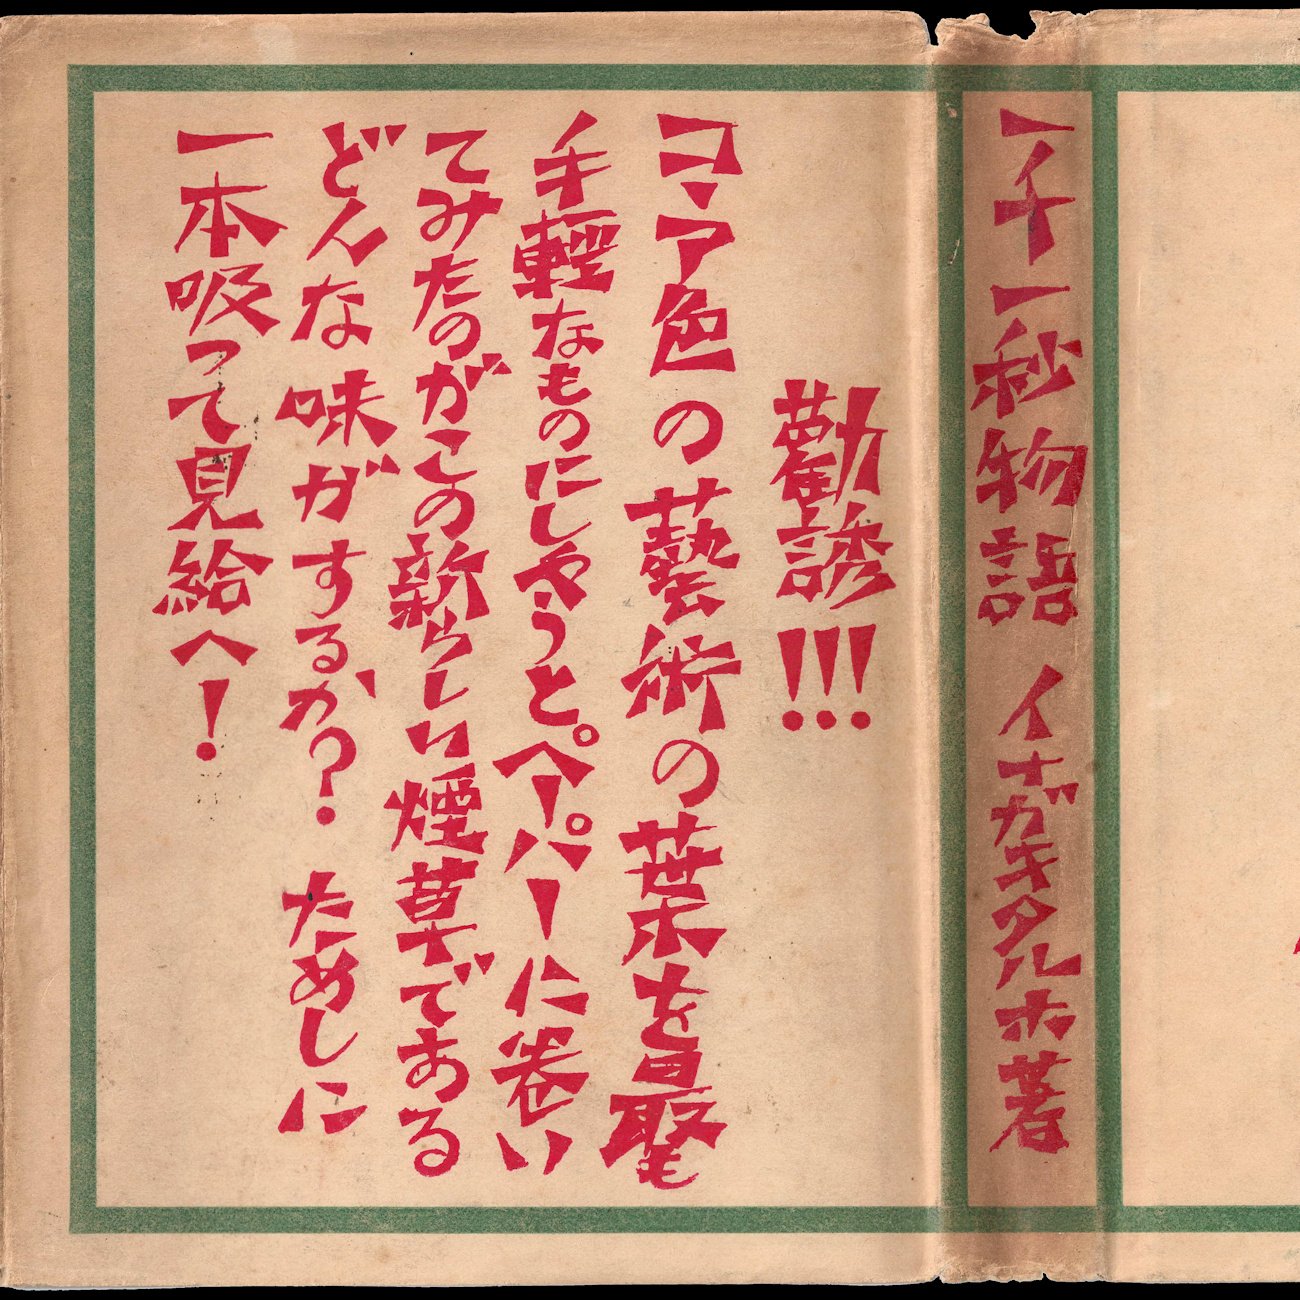 一千一秒物語 イナガキタルホ著
勸誘!!!
コヽア色の藝術の葉を最も
手輕なものにしやうとペーパーに卷い
てみたのがこの新らしい煙草である
どんな味がするか? ためしに
一本吸って見給へ!